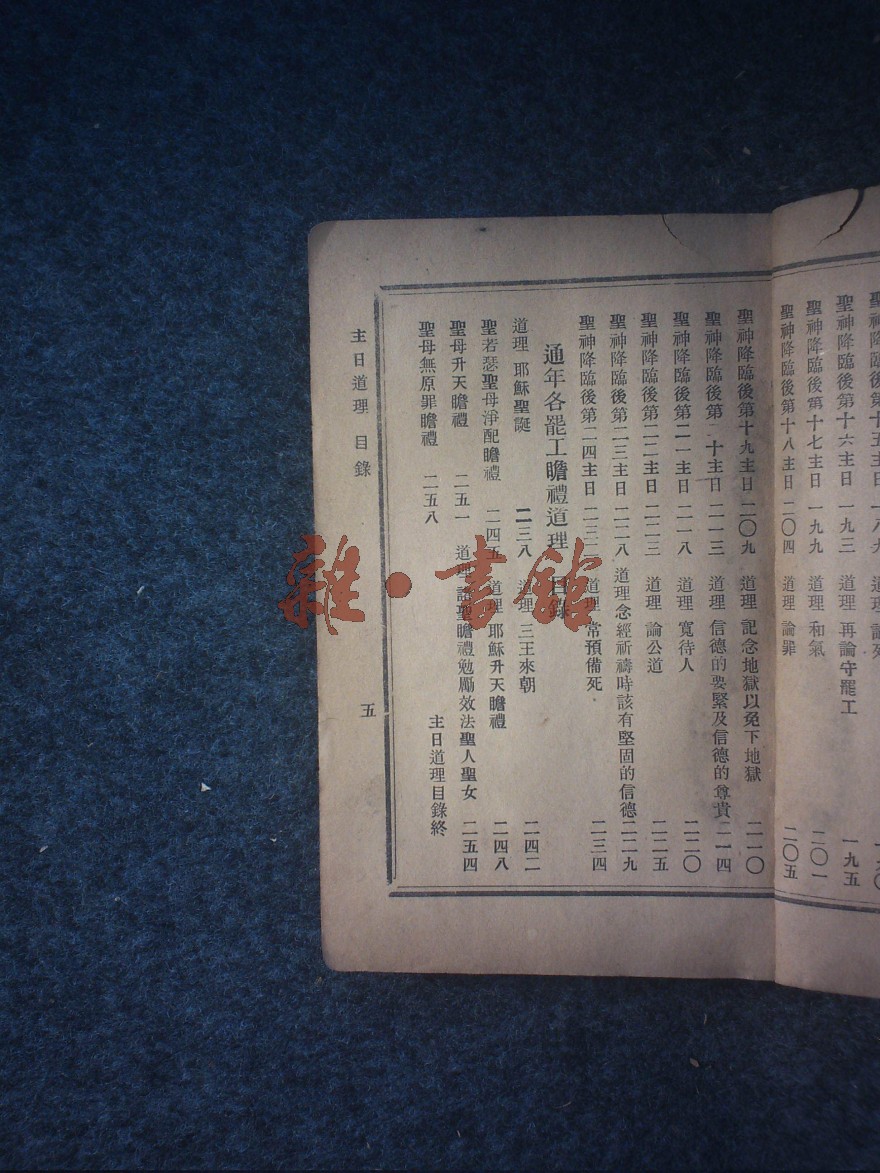 聖神降臨後第十五主日
聖神降臨後第十六主日 一九三 道理 再論守罷工 一九五
聖神降臨後第十七主日 一九九 道理 和氣 二〇一
聖神降臨後第十八主日 二〇四 道理 論罪 二〇五
聖神降臨後第十九主日 二〇九 道理 記念地獄以免下地獄 二一〇
聖神降臨後第 十主日 二一三 道理 信德的要緊及信德的尊貴 二一四
聖神降臨後第二一主日 二一八 道理 寬待人 二二〇
聖神降臨後第二二主日 二二三 道理 論公道 二二五
聖神降臨後第二三主日 二二八 道理 念經祈禱時該有堅固的信德 二二九
聖神降臨後第二四主日 二三 道理 常預備死 二三四
通年各罷工瞻禮道理 目錄
道理 耶穌聖誕 二三八 道理 三王來朝 二四二
聖若瑟聖母淨配瞻禮 二四五 道理 耶穌升天瞻禮 二四八
聖母升天瞻禮 二五一 道理 諸聖瞻禮勉勵效法聖人聖女 二五四
聖母無原罪瞻禮 二五八
主日道理目錄終
主日道理 目錄 五
雜·書館